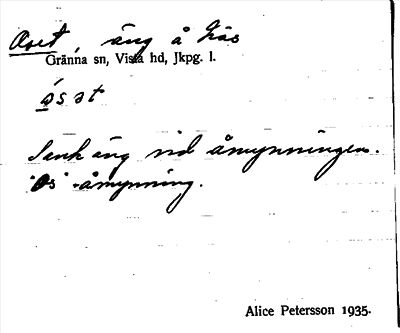 Oset, äng å Näs
Gränna sn, Vista hd, Jkpg. l.
ósət
Sank äng vid åmynningen.
"Os" = åmynning.
Alice Petersson 1935.